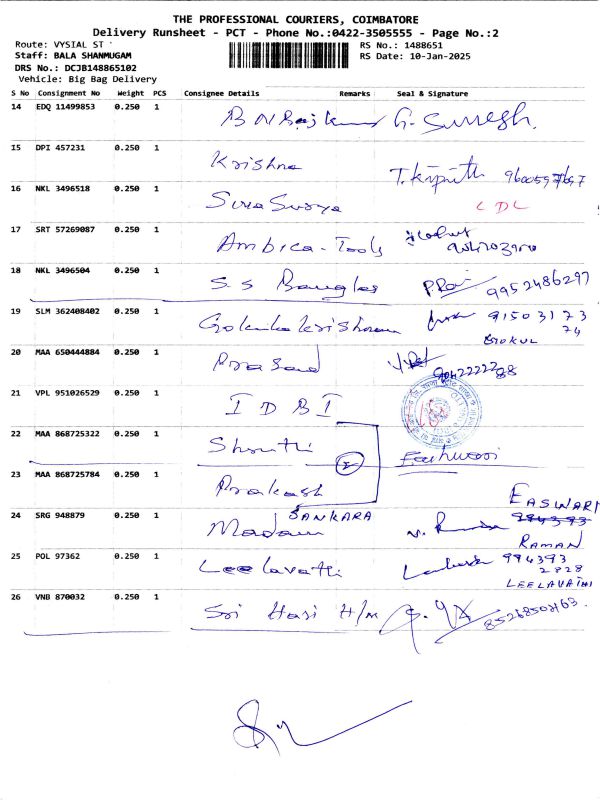 THE PROFESSIONAL COURIERS, COIMBATORE
Delivery Runsheet - PCT - Phone No.:0422-3505555 - Page No.:2
Route: VYSIAL ST
Staff: BALA SHANMUGAM
DRS No.: DCJB148865102
Vehicle: Big Bag Delivery
RS No.: 1488651
RS Date: 10-Jan-2025
S No Consignment No Weight PCS Consignee Details Remarks Seal & Signature
14 EDQ 11499853 0.250 1 B N Rajkumar G. Suresh.
15 DPI 457231 0.250 1 Krishna
16 NKL 3496518 0.250 1 Siva Surya CDL
17 SRT 57269087 0.250 1 Ambica - Tools
18 NKL 3496504 0.250 1 S. S Bangles 9952486297
19 SLM 362408402 0.250 1 Gokulakrishnan 91503173
74
GOKUL
20 MAA 650444884 0.250 1 Prasad
21 VPL 951026529 0.250 1 IDBI
22 MAA 868725322 0.250 1 Shruthi
23 MAA 868725784 0.250 1 Prakash
EASWARI
24 SRG 948879 0.250 1 SANKARA
Madam
RAMAN
25 POL 97362 0.250 1 Leelavathi 994393
2828
LEELAVATHI
26 VNB 870032 0.250 1 Sri Hari H/M